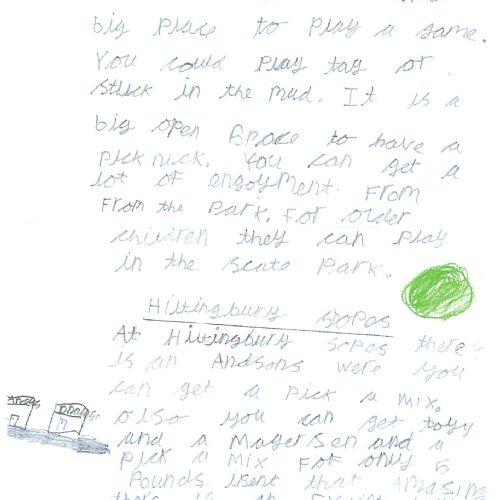 big place to play a game.
You could play tag or
stuck in the mud. It is a
big open space to have a
picknick. You can get a
lot of engoyment. From
From the Park. For older
children they can play
in the scate Park.
Hiltingbury sopas
At Hiltingbury sopas there
is an Andsons were you
can get a pick a mix.
olso you can get toyy
and a Magersen and a
pick a mix For only 5
Pounds isent that amasing
there is an